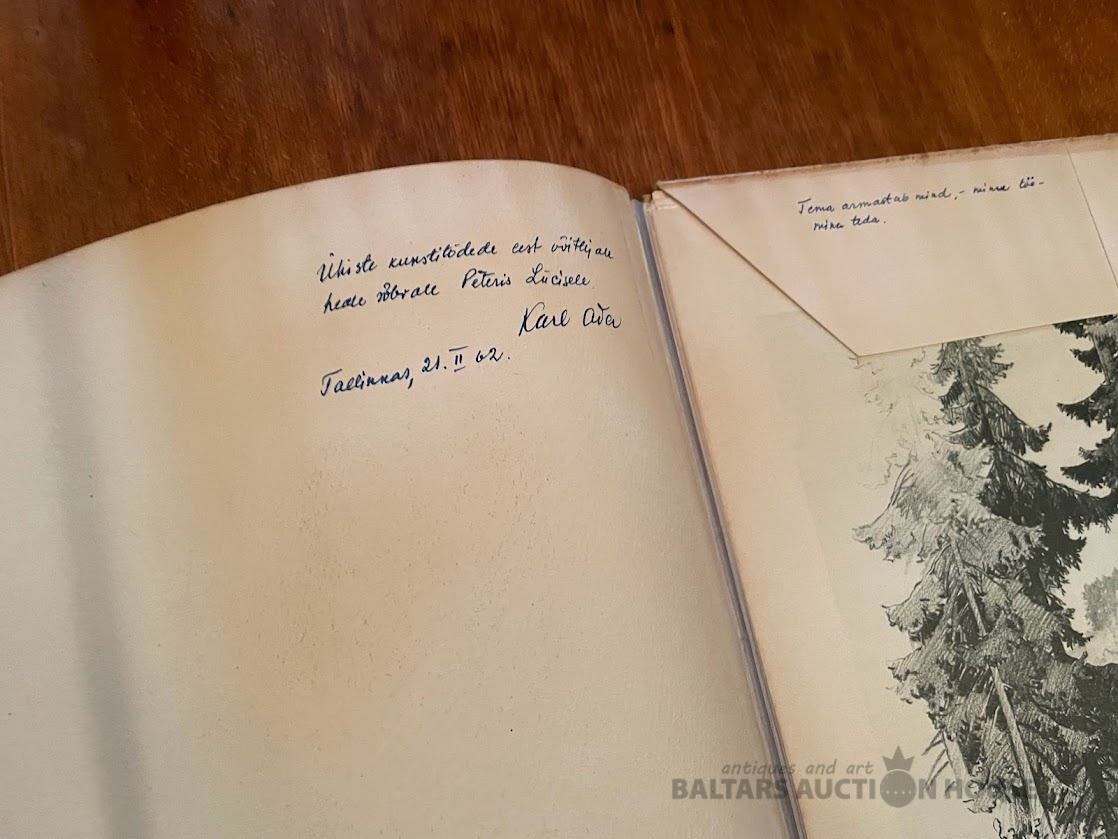 Ühiste kunstitõdede eest võitlejale
heale sõbrale Pēteris Lūcisele
Karl
Tallinnas, 21. II 62.
Tema armastab mind, – minu töö –
minu teda.
antiques and art
BALTARS AUCTION HOUSE